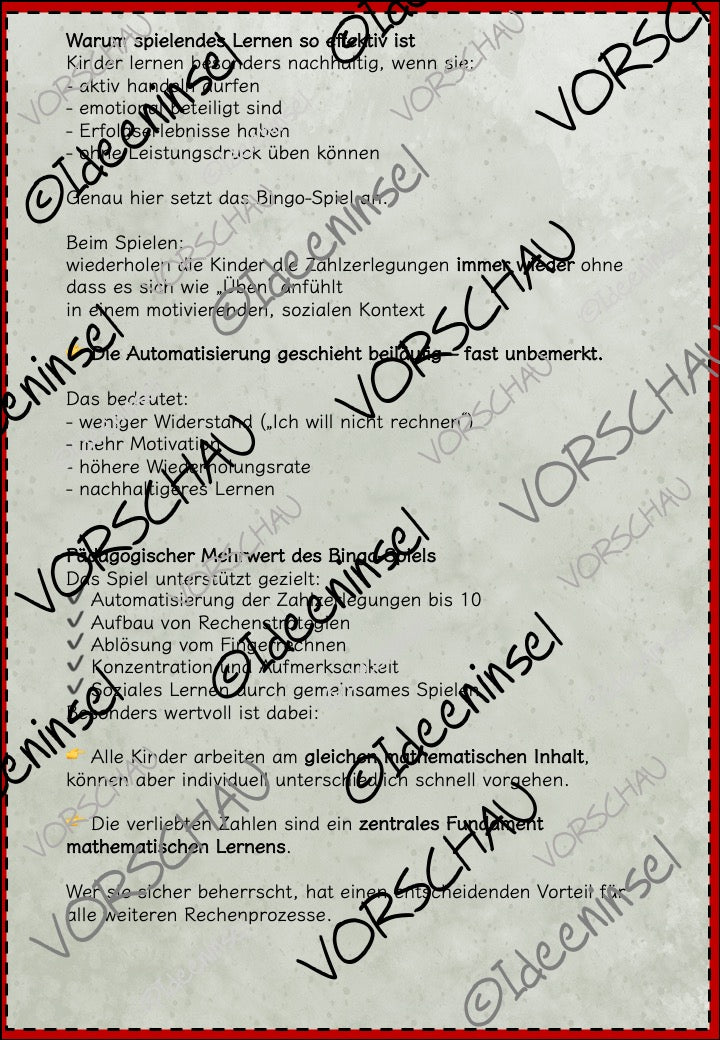 Warum spielendes Lernen so effektiv ist
Kinder lernen besonders nachhaltig, wenn sie:
- aktiv handeln dürfen
- emotional beteiligt sind
- Erfolgserlebnisse haben
- ohne Leistungsdruck üben können
Genau hier setzt das Bingo-Spiel an.
Beim Spielen:
wiederholen die Kinder die Zahlzerlegungen immer wieder ohne
dass es sich wie „Üben“ anfühlt
in einem motivierenden, sozialen Kontext
👉 Die Automatisierung geschieht beiläufig – fast unbemerkt.
Das bedeutet:
- weniger Widerstand („Ich will nicht rechnen“)
- mehr Motivation
- höhere Wiederholungsrate
- nachhaltigeres Lernen
Pädagogischer Mehrwert des Bingo-Spiels
Das Spiel unterstützt gezielt:
✔ Automatisierung der Zahlzerlegungen bis 10
✔ Aufbau von Rechenstrategien
✔ Ablösung vom Fingerrechnen
✔ Konzentration und Aufmerksamkeit
✔ Soziales Lernen durch gemeinsames Spielen
Besonders wertvoll ist dabei:
👉 Alle Kinder arbeiten am gleichen mathematischen Inhalt,
können aber individuell unterschiedlich schnell vorgehen.
👉 Die verliebten Zahlen sind ein zentrales Fundament
mathematischen Lernens.
Wer sie sicher beherrscht, hat einen entscheidenden Vorteil für
alle weiteren Rechenprozesse.
VORSCHAU
©Ideeninsel